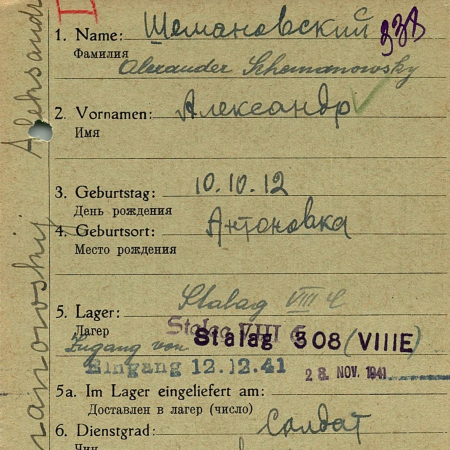 1. Name: Шемановский 938
Фамилия
Alexander Schemanowsky
2. Vornamen: Александр
Имя
3. Geburtstag: 10.10.12
День рождения
4. Geburtsort: Антоновка
Место рождения
5. Lager: Stalag VIII C
Лагер Stalag VIII C
Zugang von Stalag 308 (VIIIE)
Eingang 12.12.41 28. NOV. 1941
5a. Im Lager eingeliefert am:
Доставлен в лагер (число)
6. Dienstgrad: Солдат
Чин
anowskij Aleksandr